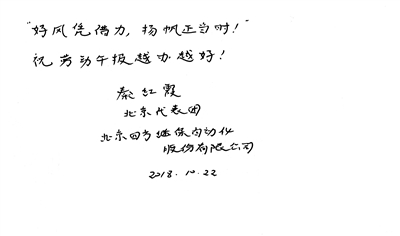 “好风凭借力，扬帆正当时！”
祝劳动午报越办越好！
秦红霞
北京代表团
北京四方继保自动化
股份有限公司
2018.10.22